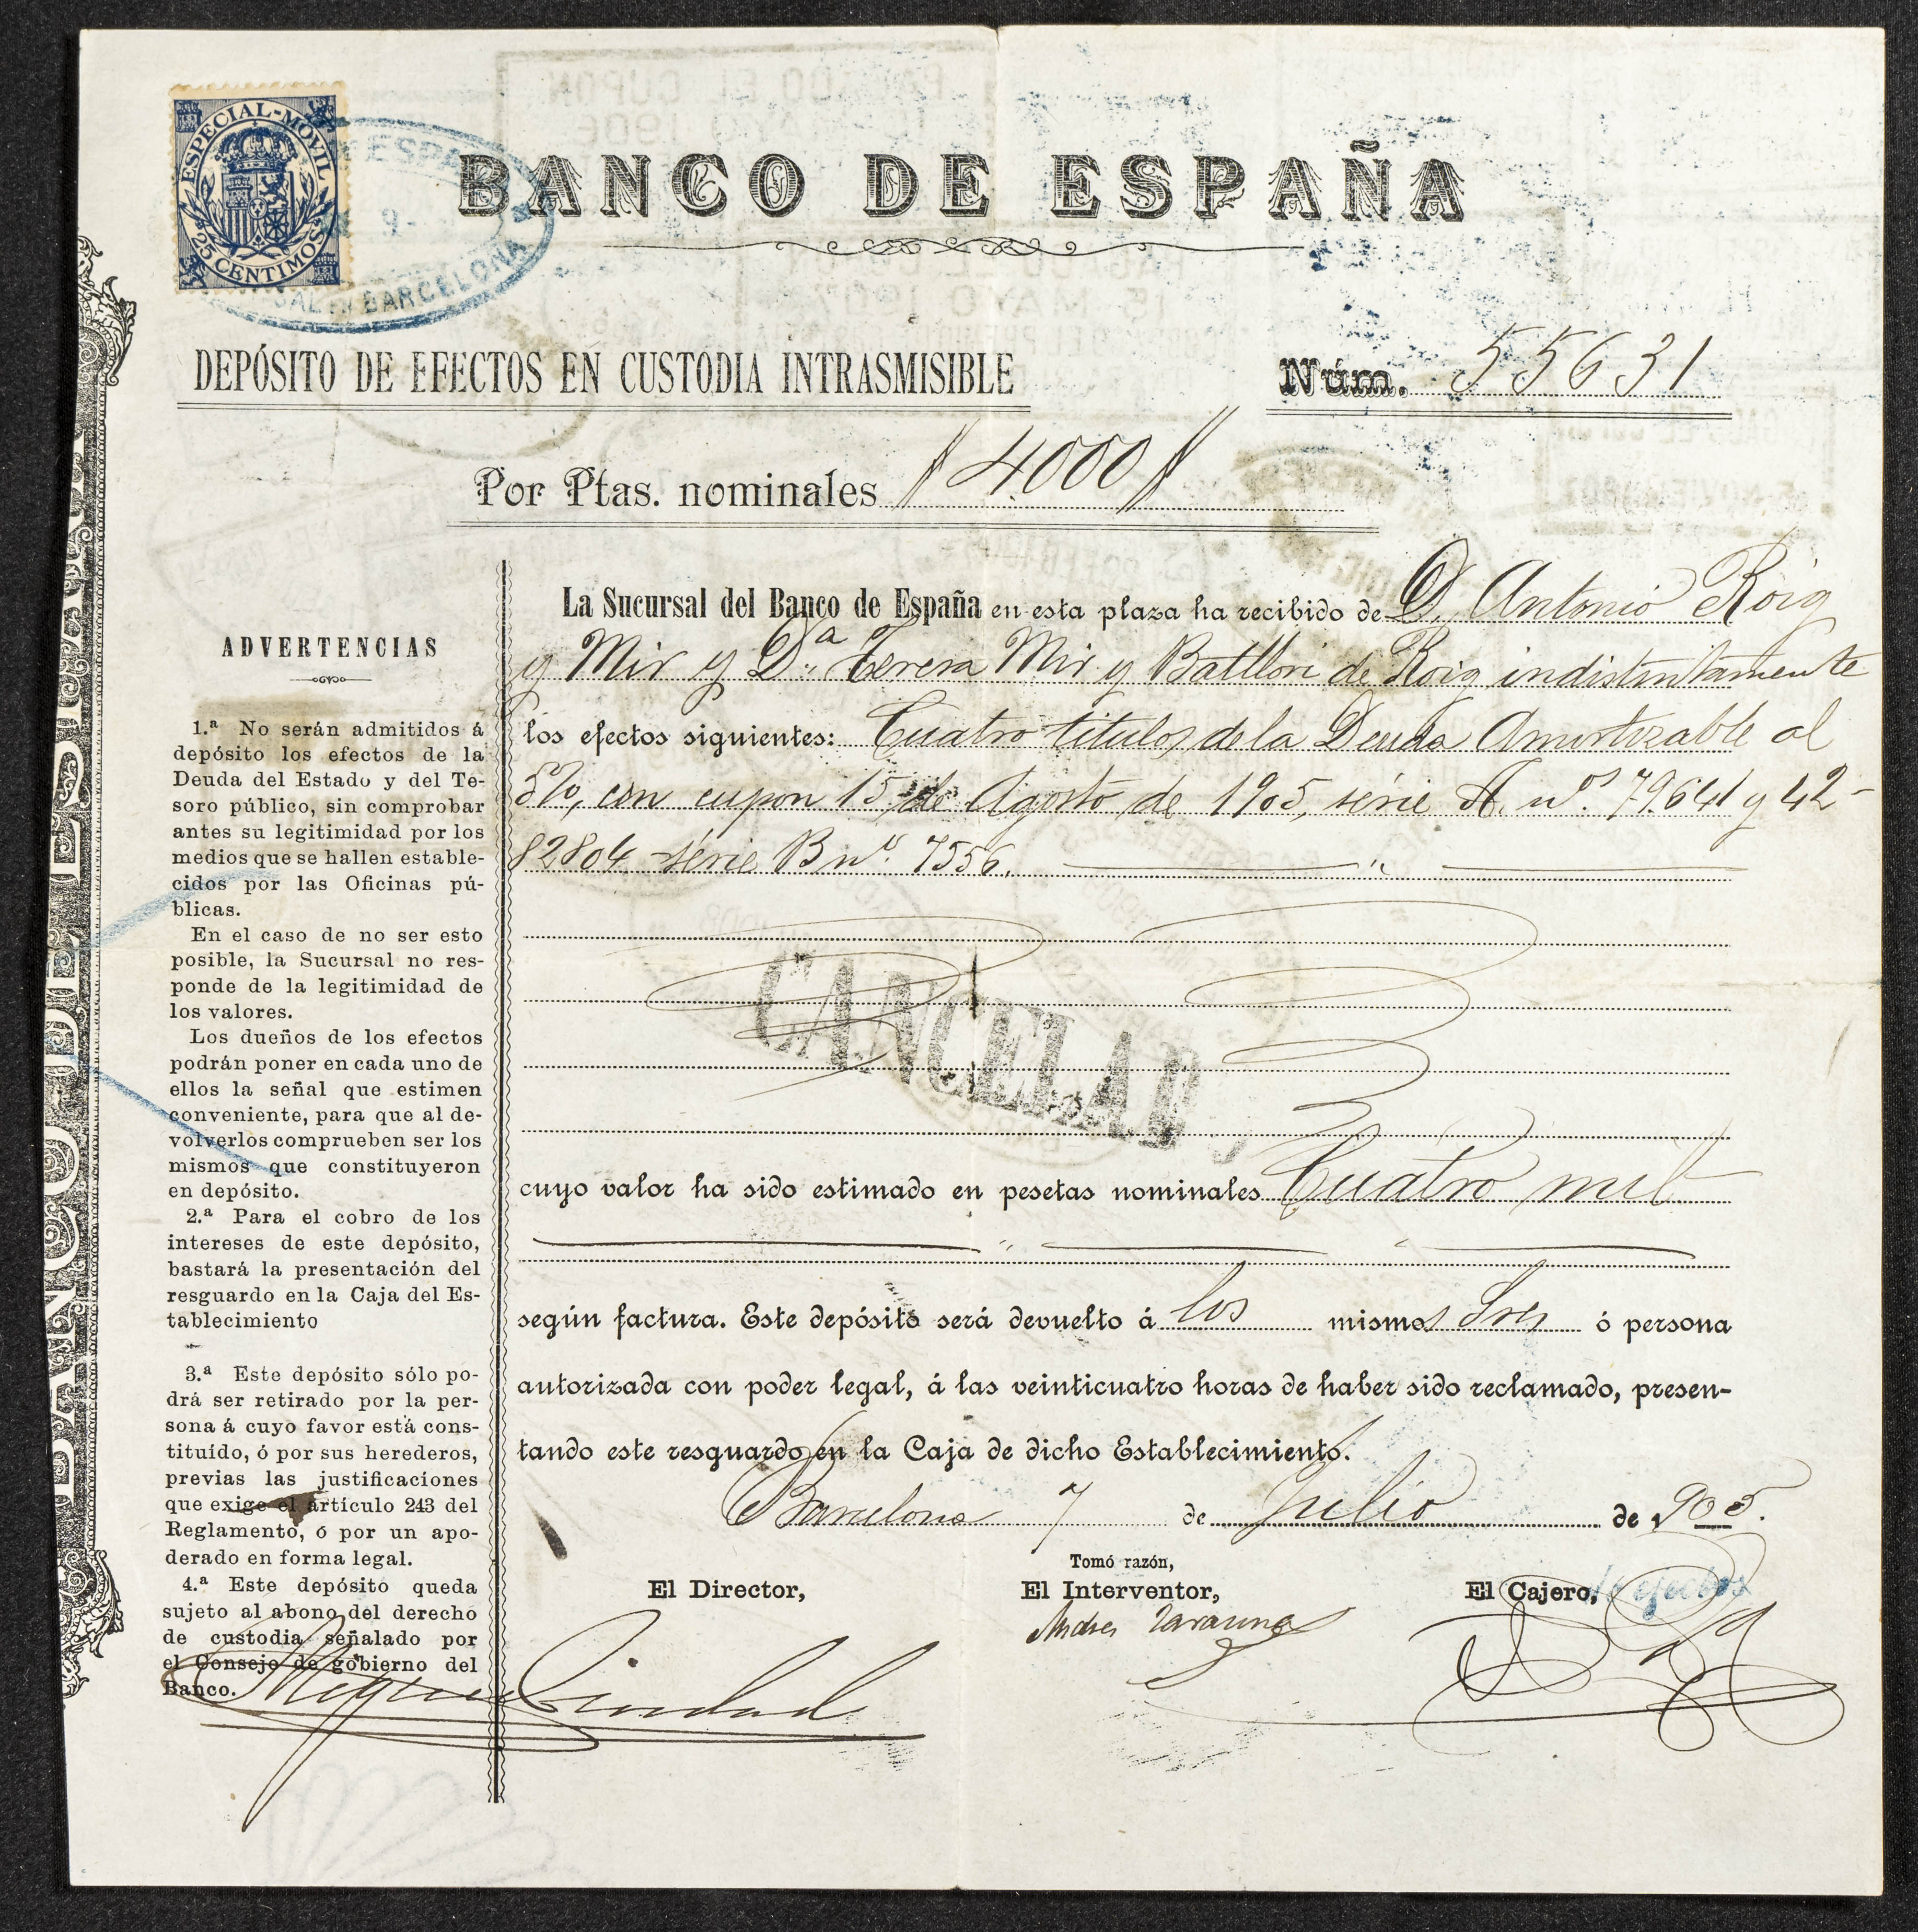 ESPECIAL-MOVIL
25 CENTIMOS
ESPA
9-
BARCELONA
BANCO DE ESPAÑA
DEPÓSITO DE EFECTOS EN CUSTODIA INTRASMISIBLE
Núm. 55631
Por Ptas. nominales 4000
ADVERTENCIAS
1.ª No serán admitidos á
depósito los efectos de la
Deuda del Estado y del Te-
soro público, sin comprobar
antes su legitimidad por los
medios que se hallen estable-
cidos por las Oficinas pú-
blicas.
En el caso de no ser esto
posible, la Sucursal no res-
ponde de la legitimidad de
los valores.
Los dueños de los efectos
podrán poner en cada uno de
ellos la señal que estimen
conveniente, para que al de-
volverlos comprueben ser los
mismos que constituyeron
en depósito.
2.ª Para el cobro de los
intereses de este depósito,
bastará la presentación del
resguardo en la Caja del Es-
tablecimiento
3.ª Este depósito sólo po-
drá ser retirado por la per-
sona á cuyo favor está cons-
tituído, ó por sus herederos,
previas las justificaciones
que exige el artículo 243 del
Reglamento, ó por un apo-
derado en forma legal.
4.ª Este depósito queda
sujeto al abono del derecho
de custodia señalado por
el Consejo de gobierno del
Banco.
La Sucursal del Banco de España en esta plaza ha recibido de D. Antonio Roig
y Mir y D.ª Teresa Mir y Batllori de Roig indistintamente
los efectos siguientes: Cuatro titulos de la Deuda Amortizable al
5%, con cupon 15 de Agosto de 1905, série A. nos. 79641 y 42-
82804 série B nº. 7556.
CANCELAD
cuyo valor ha sido estimado en pesetas nominales Cuatro mil
según factura. Este depósito será devuelto á los mismos Sres ó persona
autorizada con poder legal, á las veinticuatro horas de haber sido reclamado, presen-
tando este resguardo en la Caja de dicho Establecimiento.
Barcelona 7 de Julio de 1905.
Tomó razón,
El Director,
El Interventor,
El Cajero, de efectos
Andres
Miguel Ciudad
BANCO DE ES